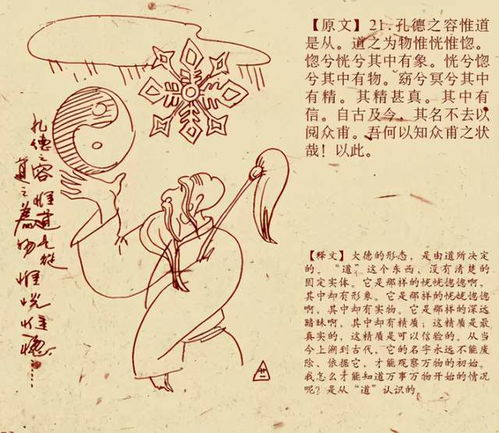 【原文】21.孔德之容惟道
是从。道之为物惟恍惟惚。
惚兮恍兮其中有象。恍兮惚
兮其中有物。窈兮冥兮其中
有精。其精甚真。其中有
信。自古及今，其名不去以
阅众甫。吾何以知众甫之状
哉！以此。
【释文】大德的形态，是由道所决定
的。“道”这个东西，没有清楚的
固定实体。它是那样的恍恍惚惚啊，
其中却有形象。它是那样的恍恍惚惚
啊，其中却有实物。它是那样的深远
暗昧啊，其中却有精质；这精质是最
真实的，这精质是可以信验的。从当
今上溯到古代，它的名字永远不能废
除、依据它，才能观察万物的初始。
我怎么才能知道万事万物开始的情况
呢？是从“道”认识的。
孔德之容惟道是從
道之為物惟恍惟惚